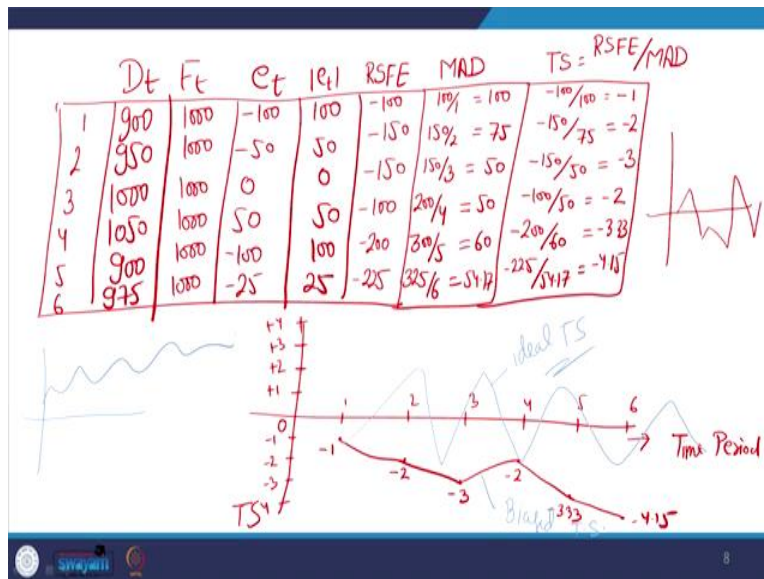 Dt Ft et |et| RSFE MAD TS = RSFE/MAD
1 900 1000 -100 100 -100 100/1 = 100 -100/100 = -1
2 950 1000 -50 50 -150 150/2 = 75 -150/75 = -2
3 1000 1000 0 0 -150 150/3 = 50 -150/50 = -3
4 1050 1000 50 50 -100 200/4 = 50 -100/50 = -2
5 900 1000 -100 100 -200 300/5 = 60 -200/60 = -333
6 975 1000 -25 25 -225 325/6 = 54.17 -225/54.17 = -4.15
+4
+3
+2
+1
0
-1
-2
-3
TS
ideal TS
1 2 3 4 5 6
Time Period
-1
-2
-3
-2
333
-4.15
T.S.
swayam
8